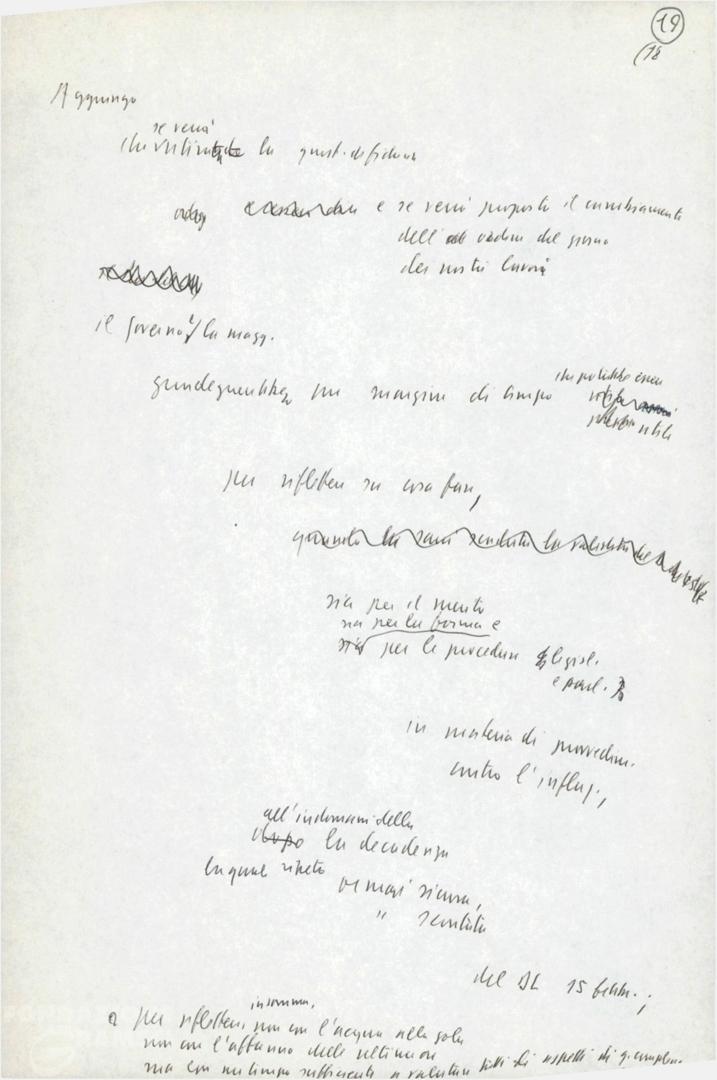 19
(18
Aggiungo
se verrà
che la quest. di fiducia
e se verrà proposto il cambiamento
dell' ordine del giorno
dei nostri lavori
il governo e la magg.
guadagnerebbe un margine di tempo che potrebbe essere
utile
per riflettere su cosa fare,
sia per il merito
sia per la forma e
per le procedure legisl.
e parl.
in materia di provvedim.
contro l'inflaz.,
all'indomani della
dopo la decadenza
la quale ripeto
ormai sicura,
" scontata
del DL 15 febbr.;
insomma,
a per riflettere, non con l'acqua alla gola
non con l'affanno delle ultime ore
ma con un tempo sufficiente a valutare tutti gli aspetti di q.